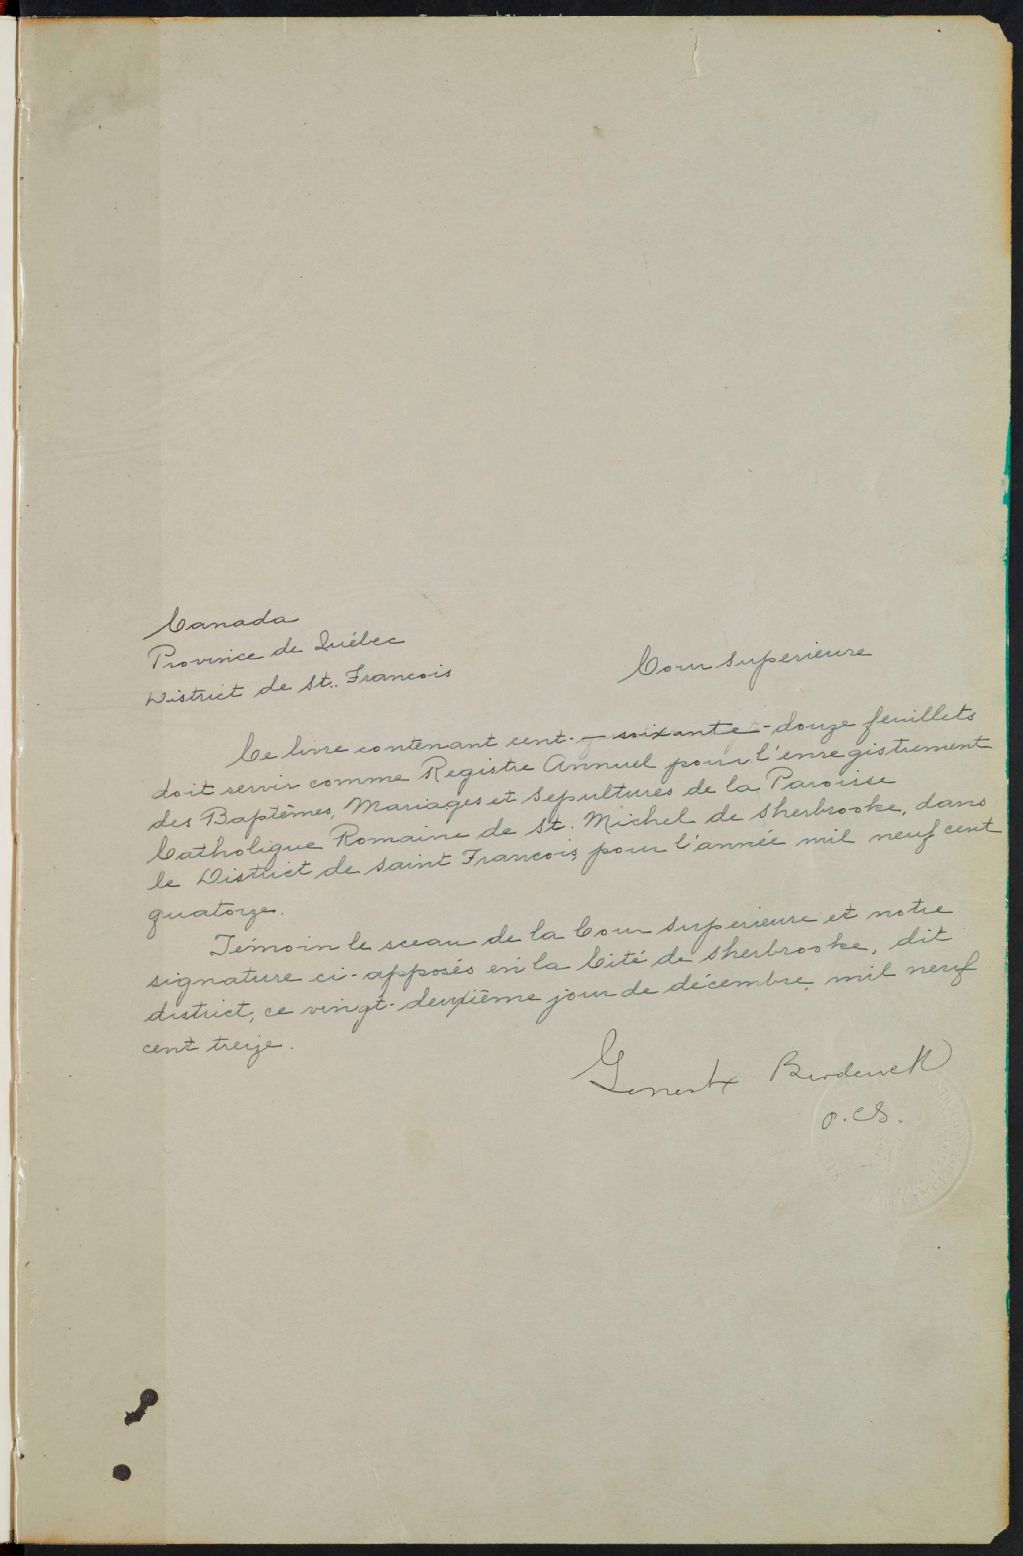 Canada
Province de Québec
District de St. Francois
Cour Superieure
Ce livre contenant cent-soixante-douze feuillets
doit servir comme Registre Annuel pour l'enregistrement
des Baptêmes, Mariages et Sepultures de la Paroisse
Catholique Romaine de St. Michel de Sherbrooke, dans
le District de Saint Francois pour l'année mil neuf cent
quatorze.
Témoin le sceau de la Cour Superieure et notre
signature ci-apposés en la Cité de Sherbrooke, dit
district, ce vingt-deuxième jour de décembre, mil neuf
cent treize.
P.C.S.